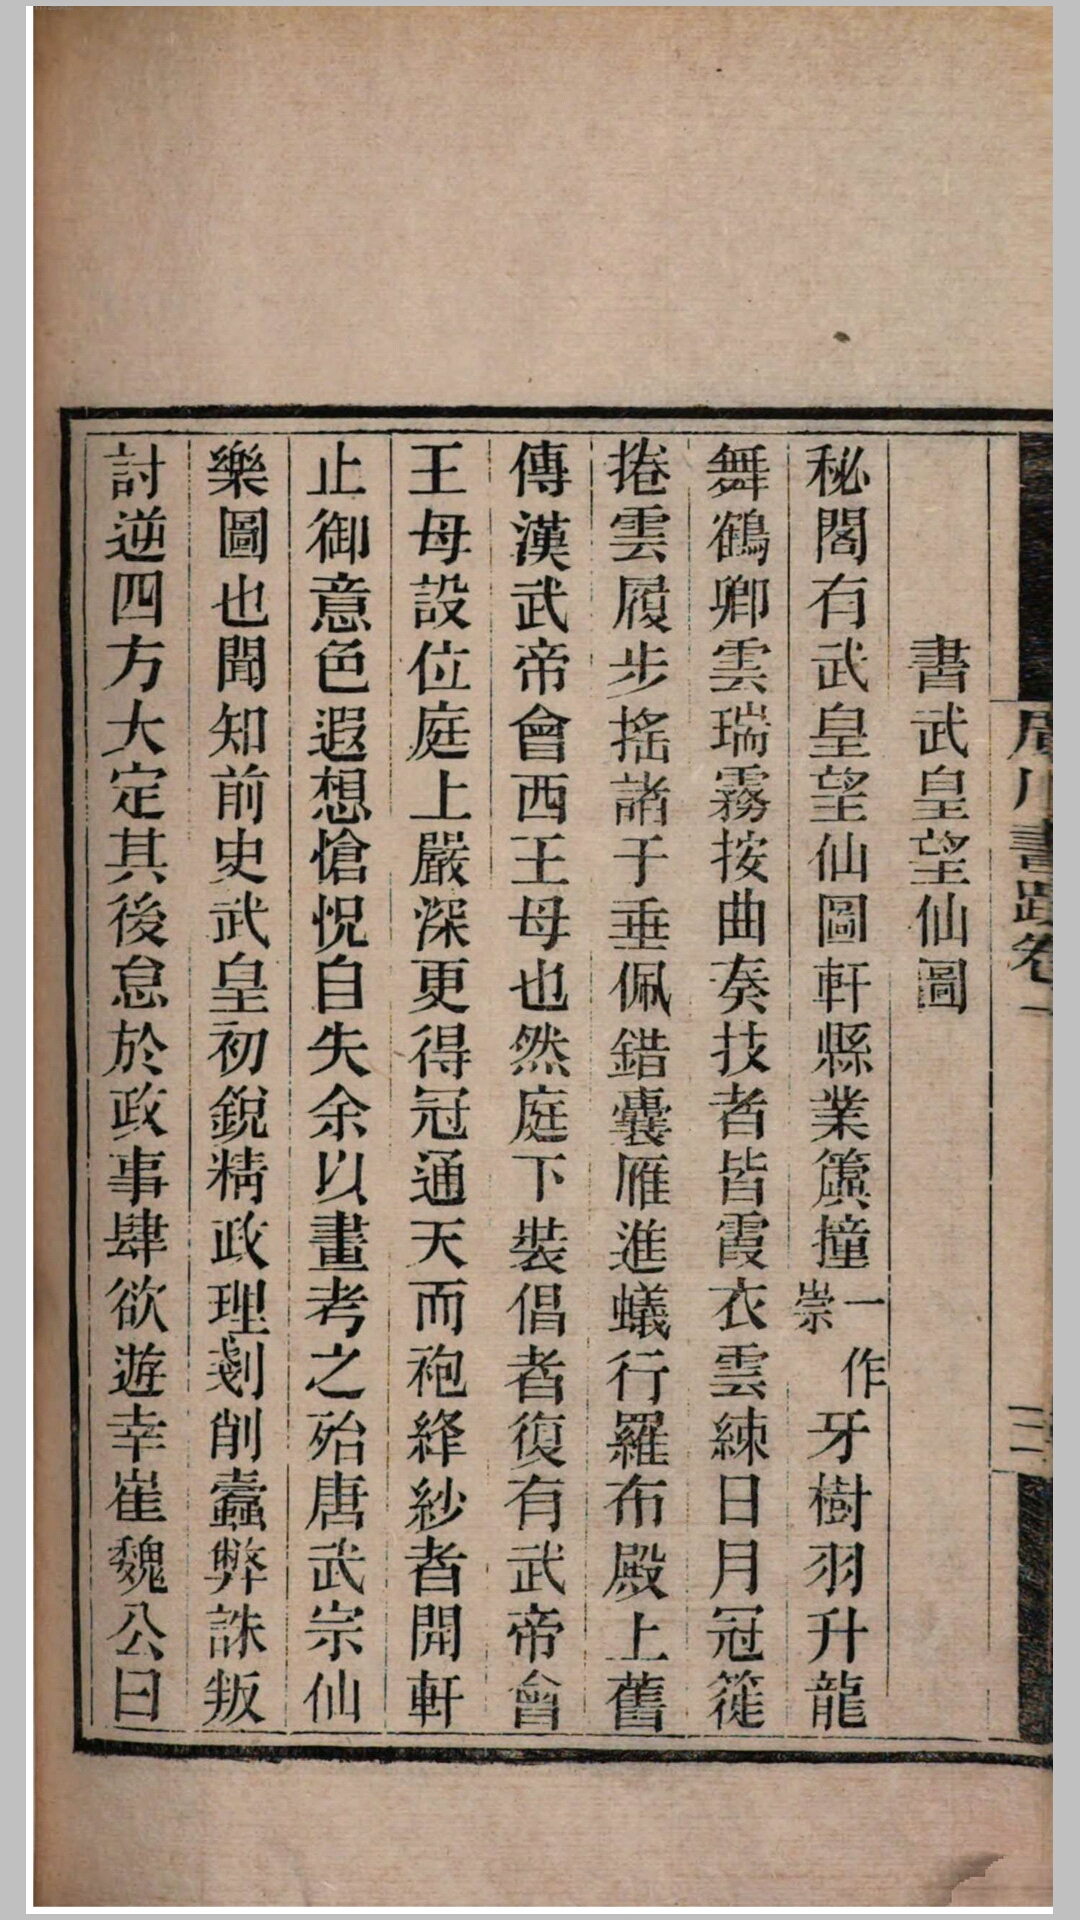 書武皇望仙圖
秘閣有武皇望仙圖軒縣業簴撞一作崇牙樹羽升龍
舞鶴卿雲瑞霧按曲奏技者皆霞衣雲練日月冠簁
捲雲履步搖諸于垂佩錯囊雁進蟻行羅布殿上舊
傳漢武帝會西王母也然庭下裝倡者復有武帝會
王母設位庭上嚴深更得冠通天而袍絳紗者開軒
止御意色遐想愴怳自失余以畫考之殆唐武宗仙
樂圖也聞知前史武皇初銳精政理剗削蠹弊誅叛
討逆四方大定其後怠於政事肆欲遊幸崔魏公曰